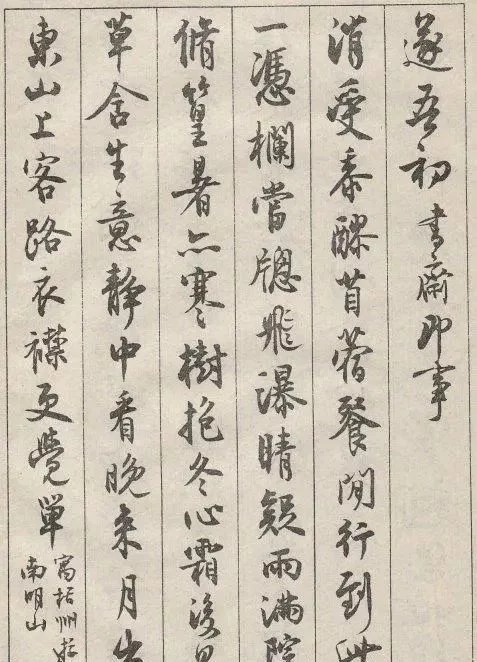 遂吾初 書齋即事
消受黍醪苜蓿餐閒行到此
一憑欄當牕飛瀑晴疑雨滿院
脩篁暑亦寒樹抱冬心霜後見
草含生意靜中看晚來月出
東山上客路衣襟更覺單
寓括州
南明山